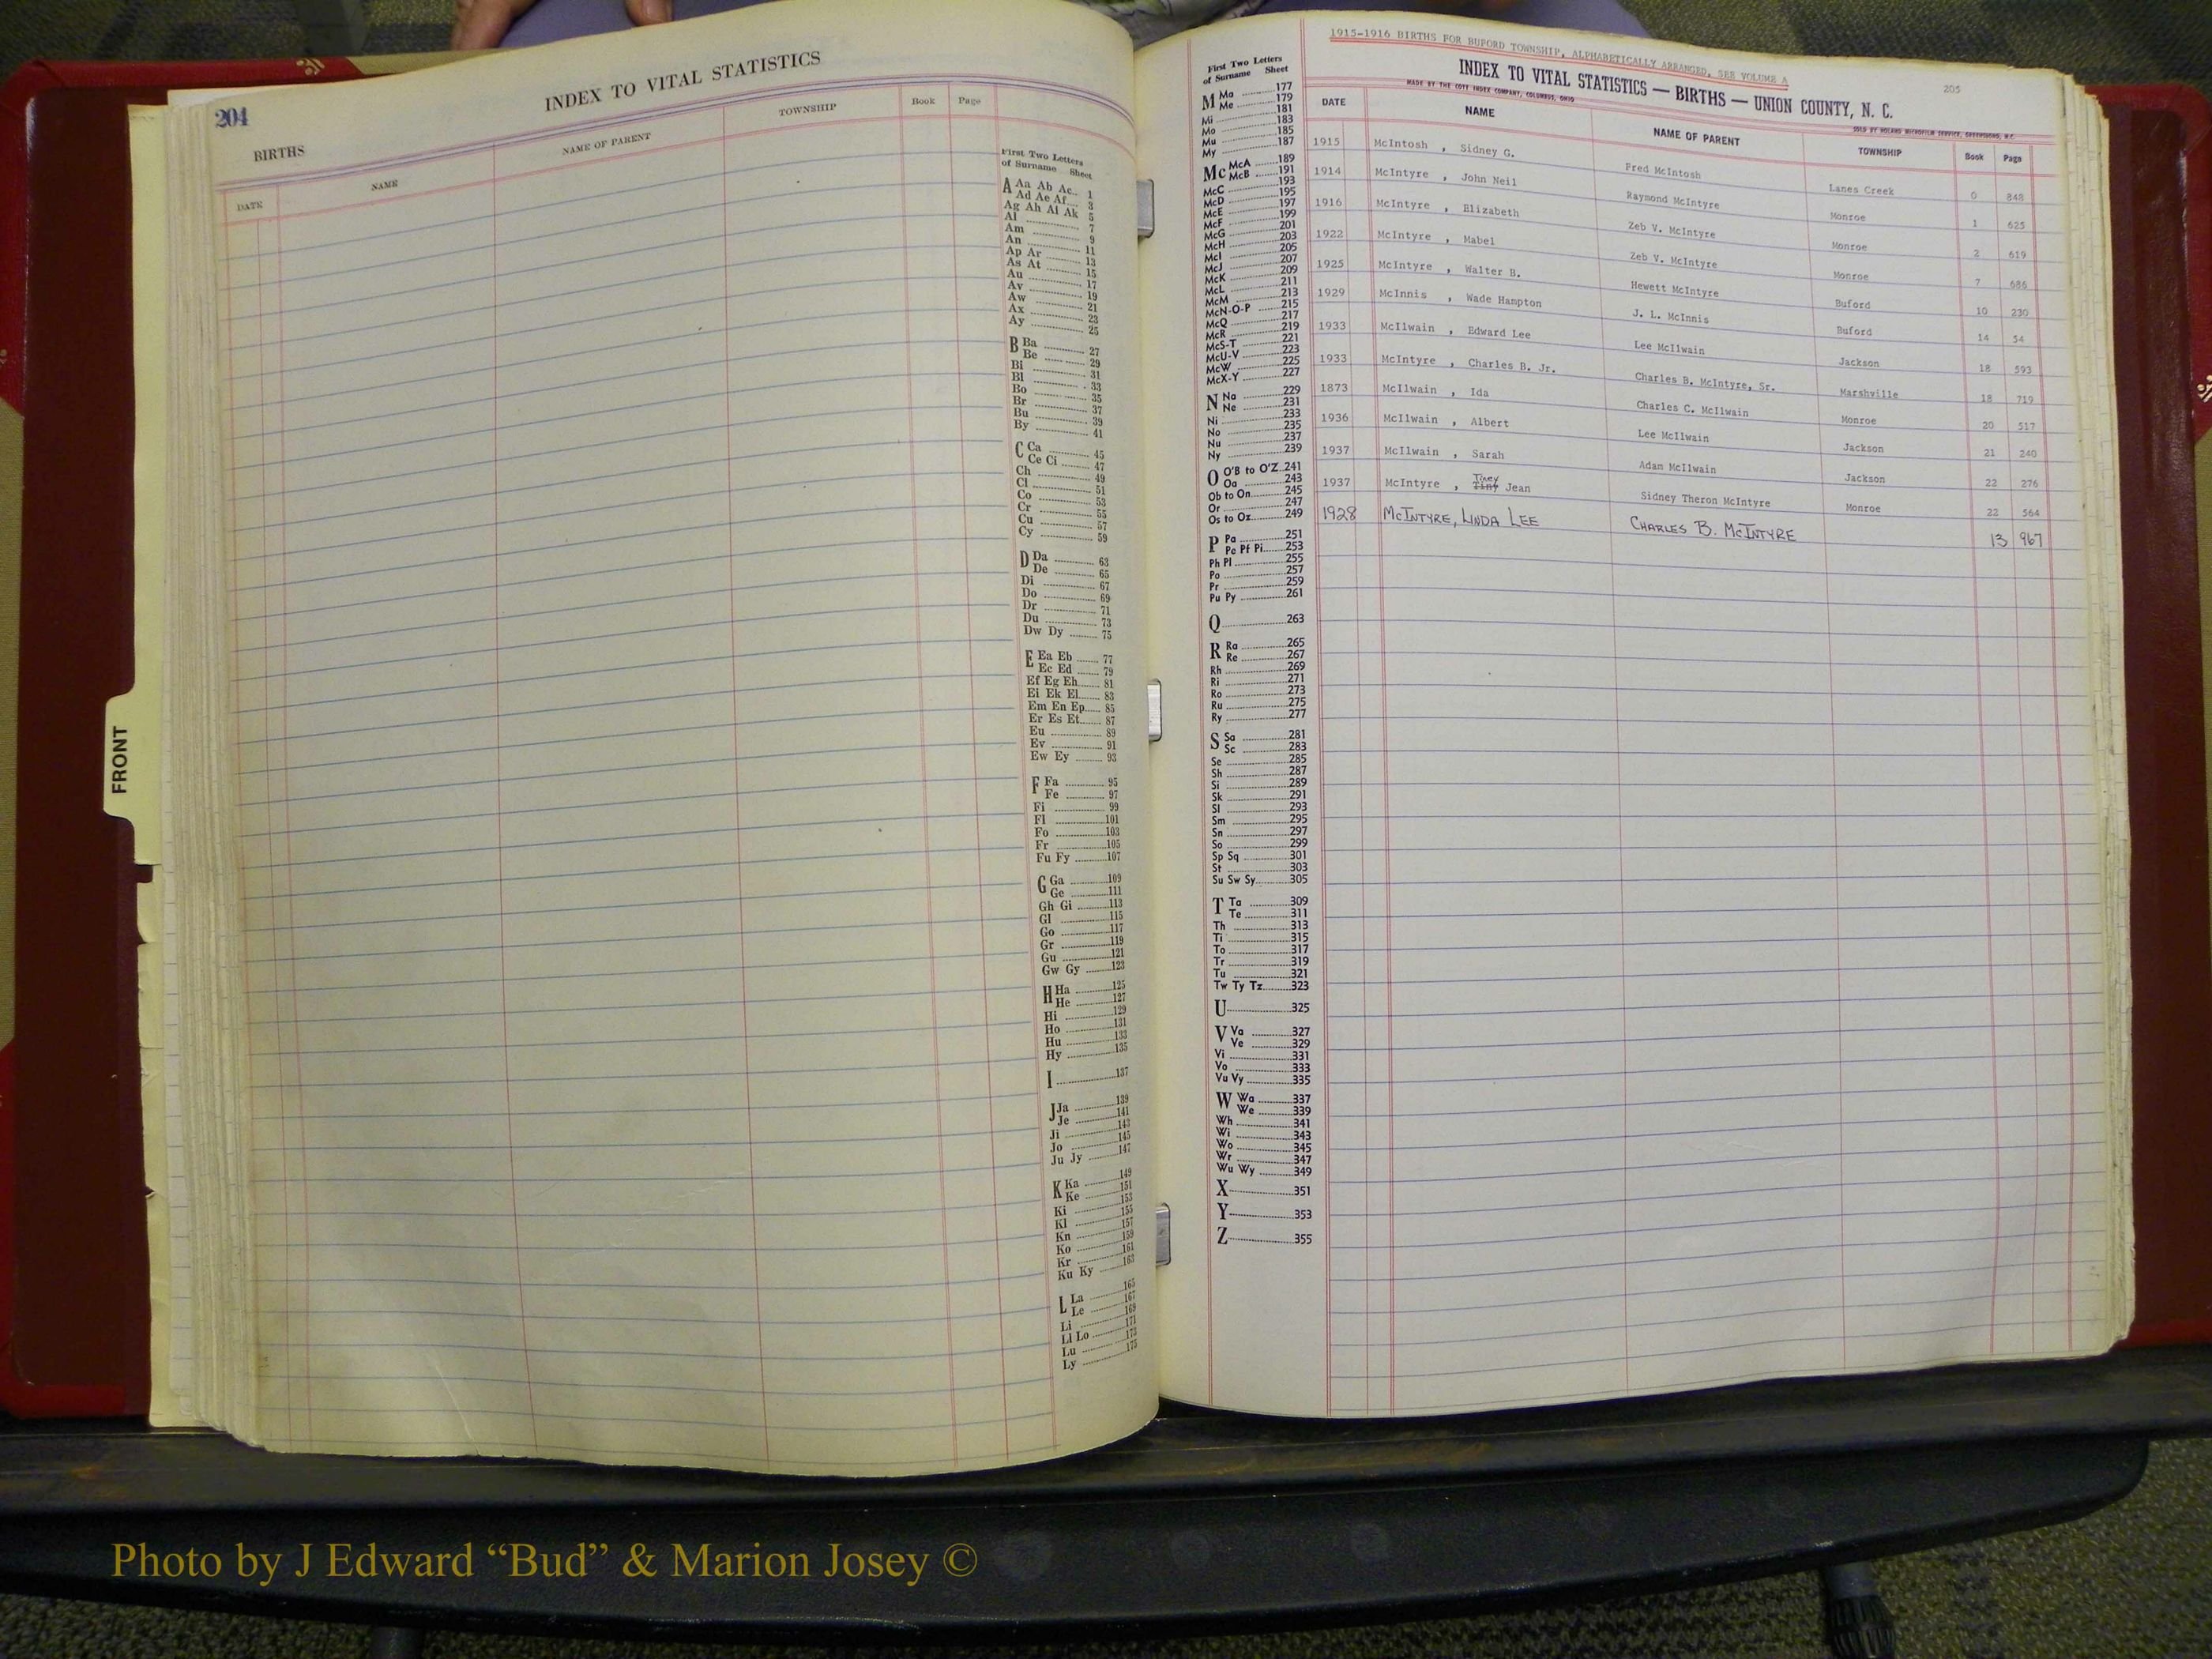 204
INDEX TO VITAL STATISTICS
BIRTHS
DATE NAME NAME OF PARENT TOWNSHIP Book Page
First Two Letters
of Surname Sheet
A Aa Ab Ac 1
Ad Ae Af 3
Ag Ah Ai Ak 5
Al 7
Am 9
An 11
Ap Ar 13
As At 15
Au 17
Av 19
Aw 21
Ax 23
Ay 25
B Ba 27
Be 29
Bi 31
Bl 33
Bo 35
Br 37
Bu 39
By 41
C Ca 45
Ce Ci 47
Ch 49
Cl 51
Co 53
Cr 55
Cu 57
Cy 59
D Da 63
De 65
Di 67
Do 69
Dr 71
Du 73
Dw Dy 75
E Ea Eb 77
Ec Ed 79
Ef Eg Eh 81
Ei Ek El 83
Em En Ep 85
Er Es Et 87
Eu 89
Ev 91
Ew Ey 93
F Fa 95
Fe 97
Fi 99
Fl 101
Fo 103
Fr 105
Fu Fy 107
G Ga 109
Ge 111
Gh Gi 113
Gl 115
Go 117
Gr 119
Gu 121
Gw Gy 123
H Ha 125
He 127
Hi 129
Ho 131
Hu 133
Hy 135
I 137
J Ja 139
Je 141
Ji 143
Jo 145
Ju Jy 147
K Ka 149
Ke 151
Ki 153
Kl 155
Kn 157
Ko 159
Kr 161
Ku Ky 163
L La 165
Le 167
Li 169
Ll Lo 171
Lu 173
Ly 175
FRONT
1915-1916 BIRTHS FOR BUFORD TOWNSHIP, ALPHABETICALLY ARRANGED, SEE VOLUME A
205
INDEX TO VITAL STATISTICS — BIRTHS — UNION COUNTY, N. C.
MADE BY THE COTT INDEX COMPANY, COLUMBUS, OHIO
SOLD BY ROLAND MICROFILM SERVICE, GREENSBORO, N.C.
First Two Letters
of Surname Sheet
M Ma 177
Me 179
Mi 181
Mo 183
Mu 185
My 187
Mc McA 189
McB 191
McC 193
McD 195
McE 197
McF 199
McG 201
McH 203
McI 205
McJ 207
McK 209
McL 211
McM 213
McN-O-P 215
McQ 217
McR 219
McS-T 221
McU-V 223
McW 225
McX-Y 227
N Na 229
Ne 231
Ni 233
No 235
Nu 237
Ny 239
O O'B to O'Z 241
Oa 243
Ob to On 245
Or 247
Os to Oz 249
P Pa 251
Pe Pf Pi 253
Ph Pl 255
Po 257
Pr 259
Pu Py 261
Q 263
R Ra 265
Re 267
Rh 269
Ri 271
Ro 273
Ru 275
Ry 277
S Sa 281
Sc 283
Se 285
Sh 287
Si 289
Sk 291
Sl 293
Sm 295
Sn 297
So 299
Sp Sq 301
St 303
Su Sw Sy 305
T Ta 309
Te 311
Th 313
Ti 315
To 317
Tr 319
Tu 321
Tw Ty Tz 323
U 325
V Va 327
Ve 329
Vi 331
Vo 333
Vu Vy 335
W Wa 337
We 339
Wh 341
Wi 343
Wo 345
Wr 347
Wu Wy 349
X 351
Y 353
Z 355
DATE NAME NAME OF PARENT TOWNSHIP Book Page
1915 McIntosh , Sidney G. Fred McIntosh Lanes Creek 0 848
1914 McIntyre , John Neil Raymond McIntyre Monroe 1 625
1916 McIntyre , Elizabeth Zeb V. McIntyre Monroe 2 619
1922 McIntyre , Mabel Zeb V. McIntyre Monroe 7 686
1925 McIntyre , Walter B. Hewett McIntyre Buford 10 230
1929 McInnis , Wade Hampton J. L. McInnis Buford 14 54
1933 McIlwain , Edward Lee Lee McIlwain Jackson 18 593
1933 McIntyre , Charles B. Jr. Charles B. McIntyre, Sr. Marshville 18 719
1873 McIlwain , Ida Charles C. McIlwain Monroe 20 517
1936 McIlwain , Albert Lee McIlwain Jackson 21 240
1937 McIlwain , Sarah Adam McIlwain Jackson 22 276
1937 McIntyre , Tiny Jean Sidney Theron McIntyre Monroe 22 564
1928 McINTYRE, LINDA LEE CHARLES B. McINTYRE 13 967
Photo by J Edward “Bud” & Marion Josey ©